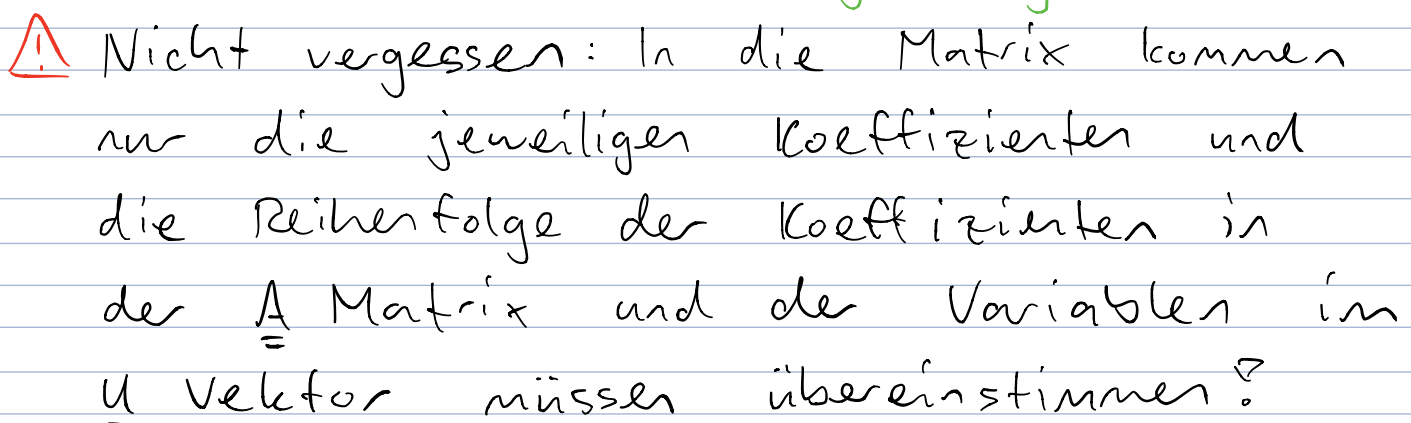 Nicht vergessen: In die Matrix kommen
nur die jeweiligen Koeffizienten und
die Reihenfolge der Koeffizienten in
der A Matrix und der Variablen im
u Vektor müssen übereinstimmen!